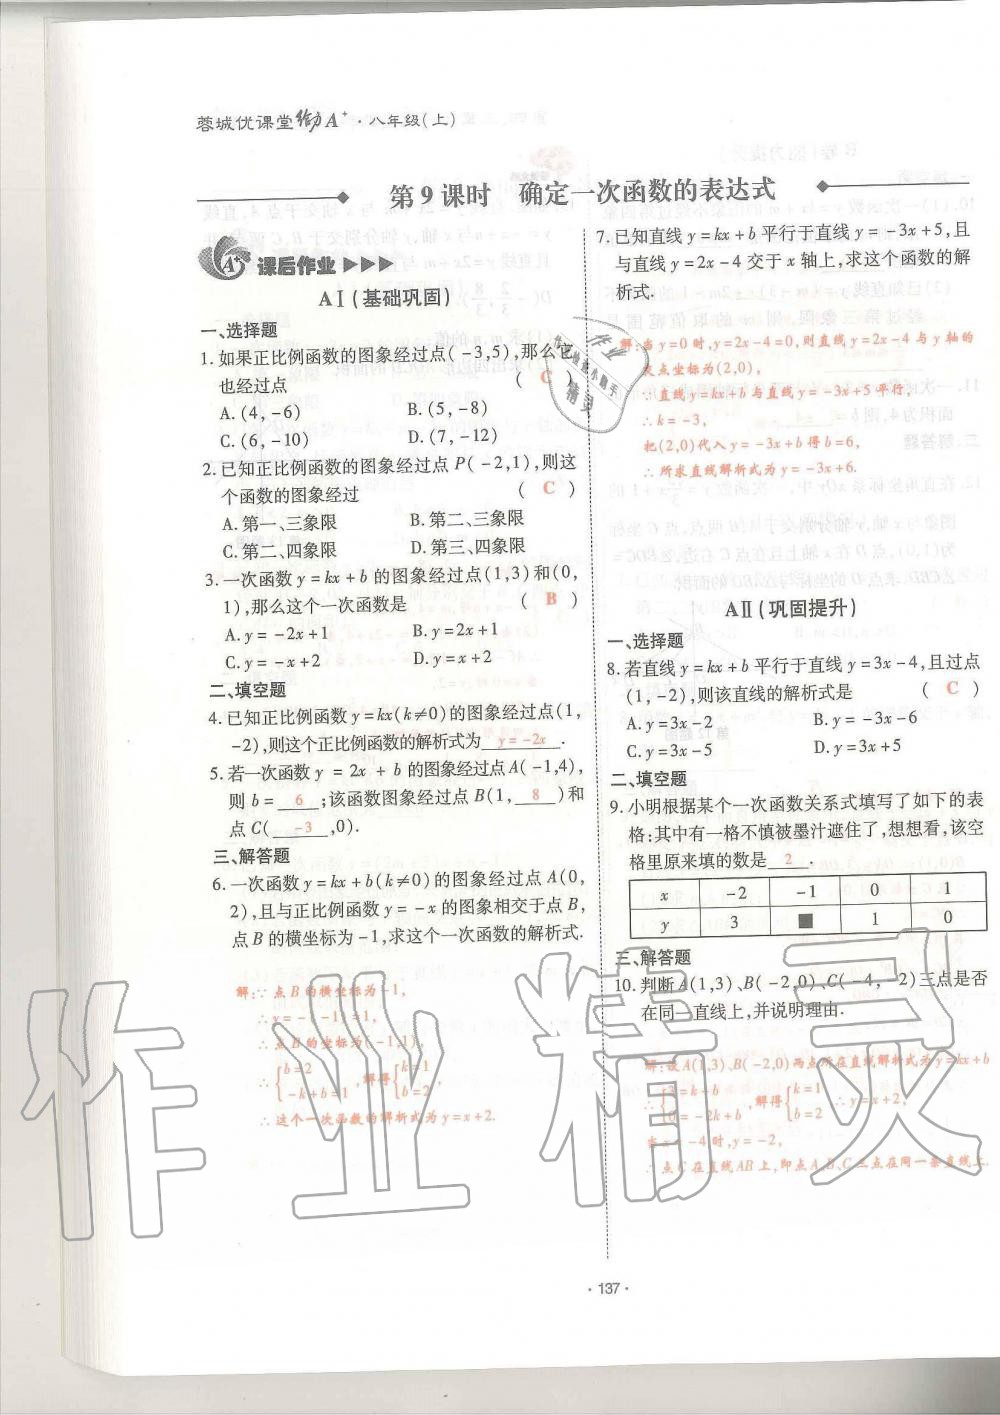 蓉城优课堂 给力A⁺·八年级(上)
第9课时 确定一次函数的表达式
A⁺ 课后作业
AⅠ(基础巩固)
一、选择题
1. 如果正比例函数的图象经过点(-3,5),那么它
也经过点 ( C )
A.(4,-6) B.(5,-8)
C.(6,-10) D.(7,-12)
2. 已知正比例函数的图象经过点P(-2,1),则这
个函数的图象经过 ( C )
A.第一、三象限 B.第二、三象限
C.第二、四象限 D.第三、四象限
3. 一次函数y=kx+b的图象经过点(1,3)和(0,
1),那么这个一次函数是 ( B )
A.y=-2x+1 B.y=2x+1
C.y=-x+2 D.y=x+2
二、填空题
4. 已知正比例函数y=kx(k≠0)的图象经过点(1,
-2),则这个正比例函数的解析式为 y=-2x .
5. 若一次函数y=2x+b的图象经过点A(-1,4),
则b= 6 ;该函数图象经过点B(1, 8 )和
点C( -3 ,0).
三、解答题
6. 一次函数y=kx+b(k≠0)的图象经过点A(0,
2),且与正比例函数y=-x的图象相交于点B,
点B的横坐标为-1,求这个一次函数的解析式.
解:∵点B的横坐标为-1,
∴y=-(-1)=1,
∴点B的坐标为(-1,1),
∴{b=2 -k+b=1,解得{k=1 b=2
∴这个一次函数的解析式为y=x+2.
7. 已知直线y=kx+b平行于直线y=-3x+5,且
与直线y=2x-4交于x轴上,求这个函数的解
析式.
解:当y=0时,y=2x-4=0,则直线y=2x-4与y轴的
交点坐标为(2,0),
∵直线y=kx+b与直线y=-3x+5平行,
∴k=-3,
把(2,0)代入y=-3x+b得b=6,
∴所求直线解析式为y=-3x+6.
AⅡ(巩固提升)
一、选择题
8. 若直线y=kx+b平行于直线y=3x-4,且过点
(1,-2),则该直线的解析式是 ( C )
A.y=3x-2 B.y=-3x-6
C.y=3x-5 D.y=3x+5
二、填空题
9. 小明根据某个一次函数关系式填写了如下的表
格:其中有一格不慎被墨汁遮住了,想想看,该空
格里原来填的数是 2 .
x -2 -1 0 1
y 3 ■ 1 0
三、解答题
10. 判断A(1,3)、B(-2,0)、C(-4,-2)三点是否
在同一直线上,并说明理由.
解:设A(1,3)、B(-2,0)两点所在直线解析式为y=kx+b
∴{3=k+b 0=-2k+b,解得{k=1 b=2 ∴y=x+2,
当x=-4时,y=-2,
∴点C在直线AB上,即点A、B、C三点在同一条直线上.
·137·
作业精灵